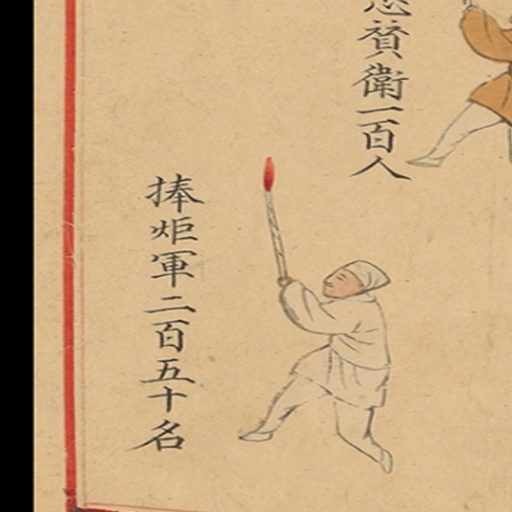 贊衛一百人
捧炬軍二百五十名